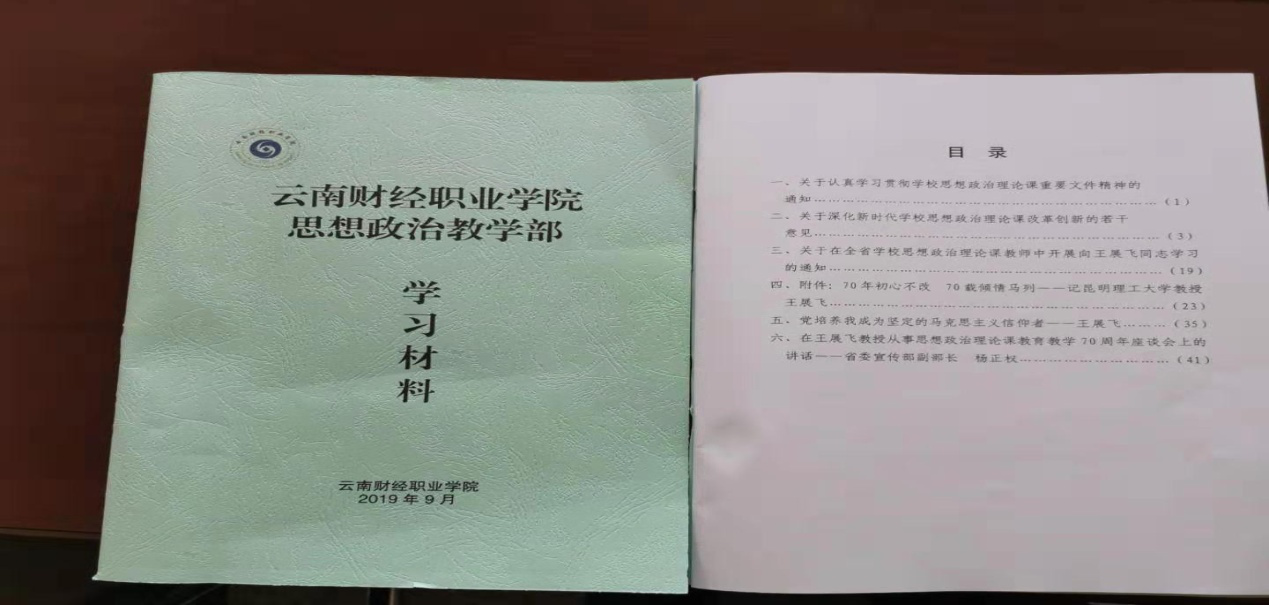 云南财经职业学院
思想政治教学部
学
习
材
料
云南财经职业学院
2019年9月
目 录
一、关于认真学习贯彻学校思想政治理论课重要文件精神的
通知……………………………………………………（1）
二、关于深化新时代学校思想政治理论课改革创新的若干
意见……………………………………………………（3）
三、关于在全省学校思想政治理论课教师中开展向王展飞同志学习
的通知…………………………………………………（19）
四、附件：70年初心不改 70载倾情马列——记昆明理工大学教授
王展飞…………………………………………………（23）
五、党培养我成为坚定的马克思主义信仰者——王展飞………（35）
六、在王展飞教授从事思想政治理论课教育教学70周年座谈会上的
讲话——省委宣传部副部长 杨正权……………………（41）